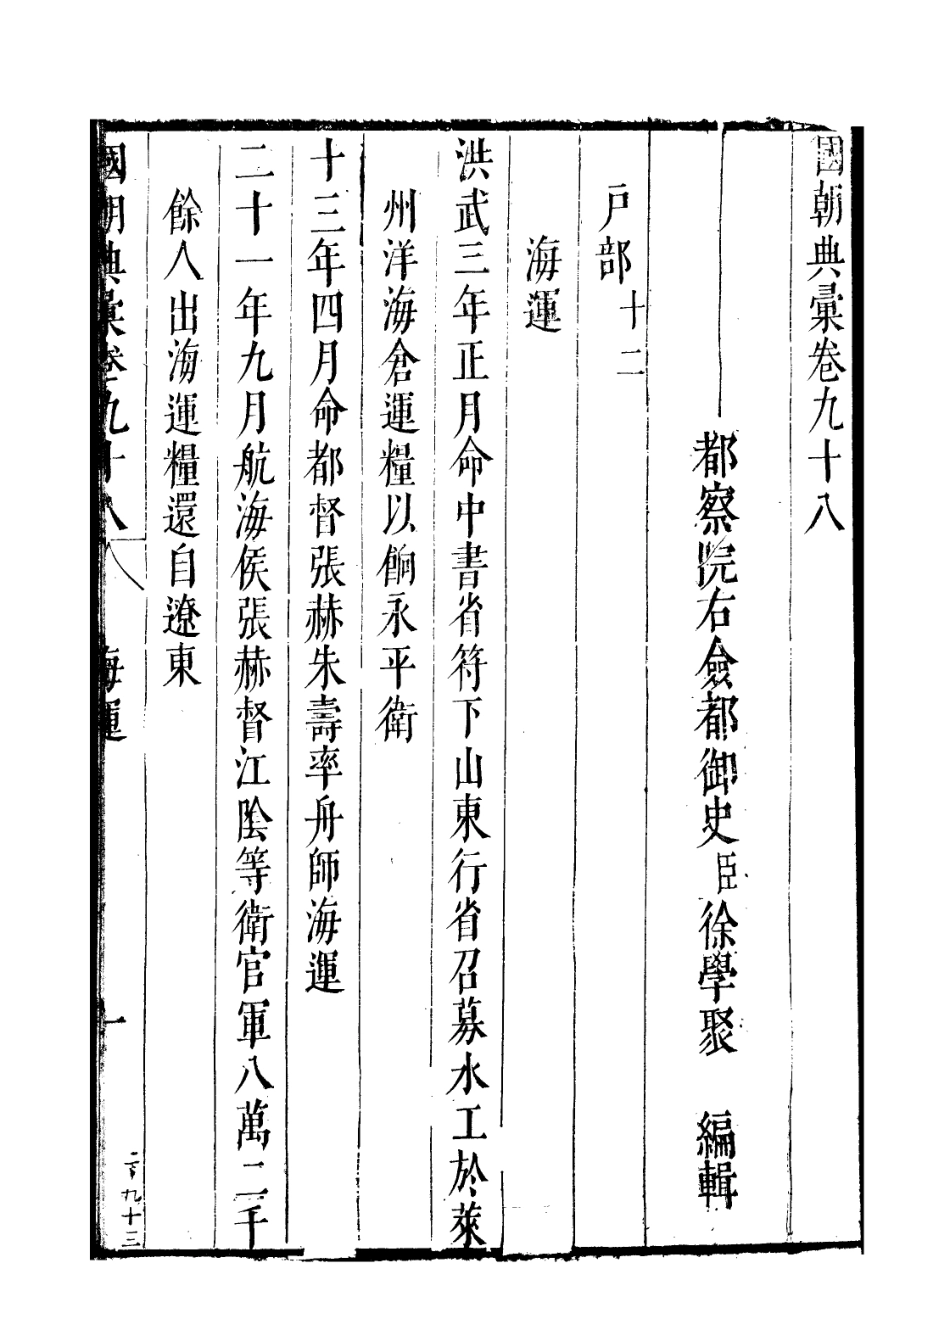 國朝典彙卷九十八
都察院右僉都御史臣徐學聚 編輯
戶部十二
海運
洪武三年正月命中書省符下山東行省召募水工於萊
州洋海倉運糧以餉永平衛
十三年四月命都督張赫朱壽率舟師海運
二十一年九月航海侯張赫督江陰等衛官軍八萬二千
餘人出海運糧還自遼東
國朝典彙卷九十八 海運 一